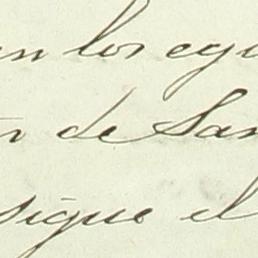 en los eg
n de San
sigue el